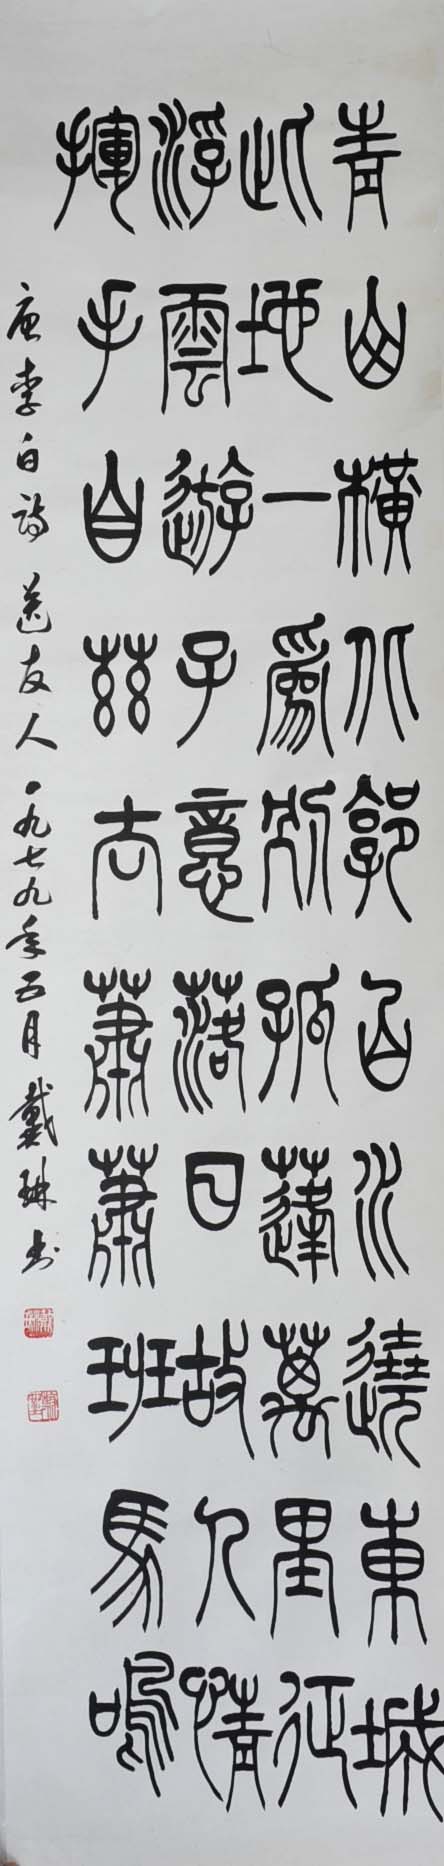 青山橫北郭白水遶東城
此地一為別孤蓬萬里征
浮雲遊子意落日故人情
揮手自茲去蕭蕭班馬鳴
唐李白詩送友人一九七九年五月戴琳書